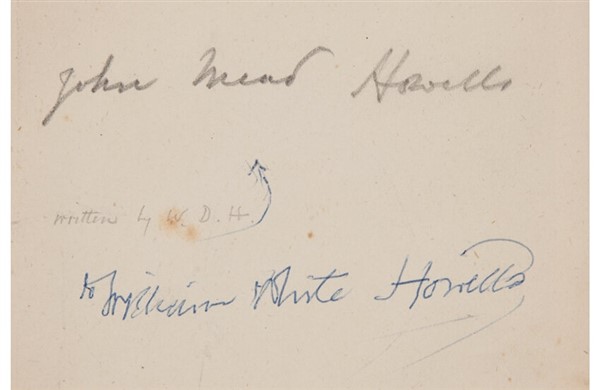 John Mead Howells
written by W. D. H.
to William White Howells